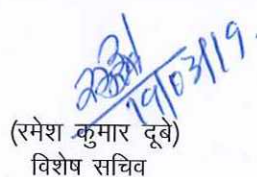 19/03/19
(रमेश कुमार दूबे)
विशेष सचिव